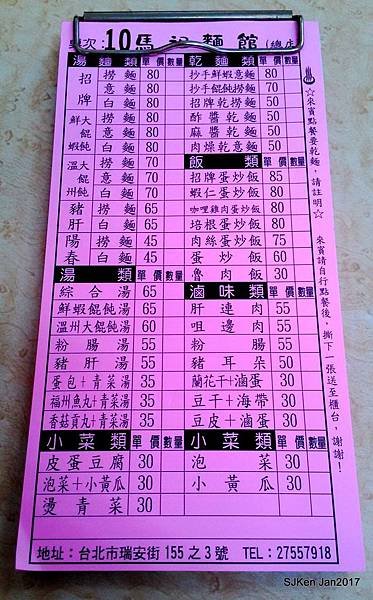 桌次:10馬祖麵館(總店
湯麵類 單價 數量
招牌 撈麵 80
意麵 80
白麵 80
鮮大蝦餛飩 撈麵 80
意麵 80
白麵 80
溫大州餛飩 撈麵 70
意麵 70
白麵 70
豬肝 撈麵 65
白麵 65
陽春 撈麵 45
白麵 45
湯類 單價 數量
綜合湯 65
鮮蝦餛飩湯 65
溫州大餛飩湯 60
粉腸湯 55
豬肝湯 55
蛋包+青菜湯 35
福州魚丸+青菜湯 35
香菇貢丸+青菜湯 35
小菜類 單價 數量
皮蛋豆腐 30
泡菜+小黃瓜 30
燙青菜 30
乾麵類 單價 數量
抄手鮮蝦意麵 80
抄手餛飩撈麵 70
招牌乾撈麵 50
酢醬乾麵 50
麻醬乾麵 50
肉燥乾意麵 50
飯類 單價 數量
招牌蛋炒飯 85
蝦仁蛋炒飯 80
咖哩雞肉蛋炒飯 80
培根蛋炒飯 80
肉絲蛋炒飯 75
蛋炒飯 60
魯肉飯 30
滷味類 單價 數量
肝連肉 55
咀邊肉 55
粉腸 55
豬耳朵 50
蘭花干+滷蛋 30
豆干+海帶 30
豆皮+滷蛋 30
小菜類 單價 數量
泡菜 30
小黃瓜 30
♨☆來賓點餐要乾麵,請註明☆
來賓請自行點餐後,撕下一張送至櫃台,謝謝!
地址:台北市瑞安街155之3號 TEL:27557918
SJKen Jan2017